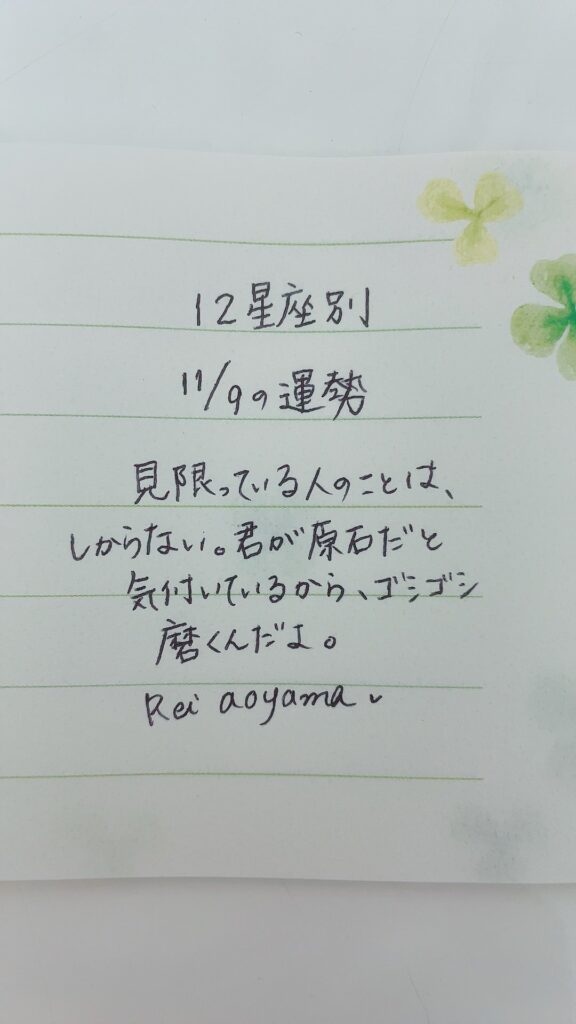 12星座別
11/9の運勢
見限っている人のことは、
しからない。君が原石だと
気付いているから、ゴシゴシ
磨くんだよ。
Rei aoyama